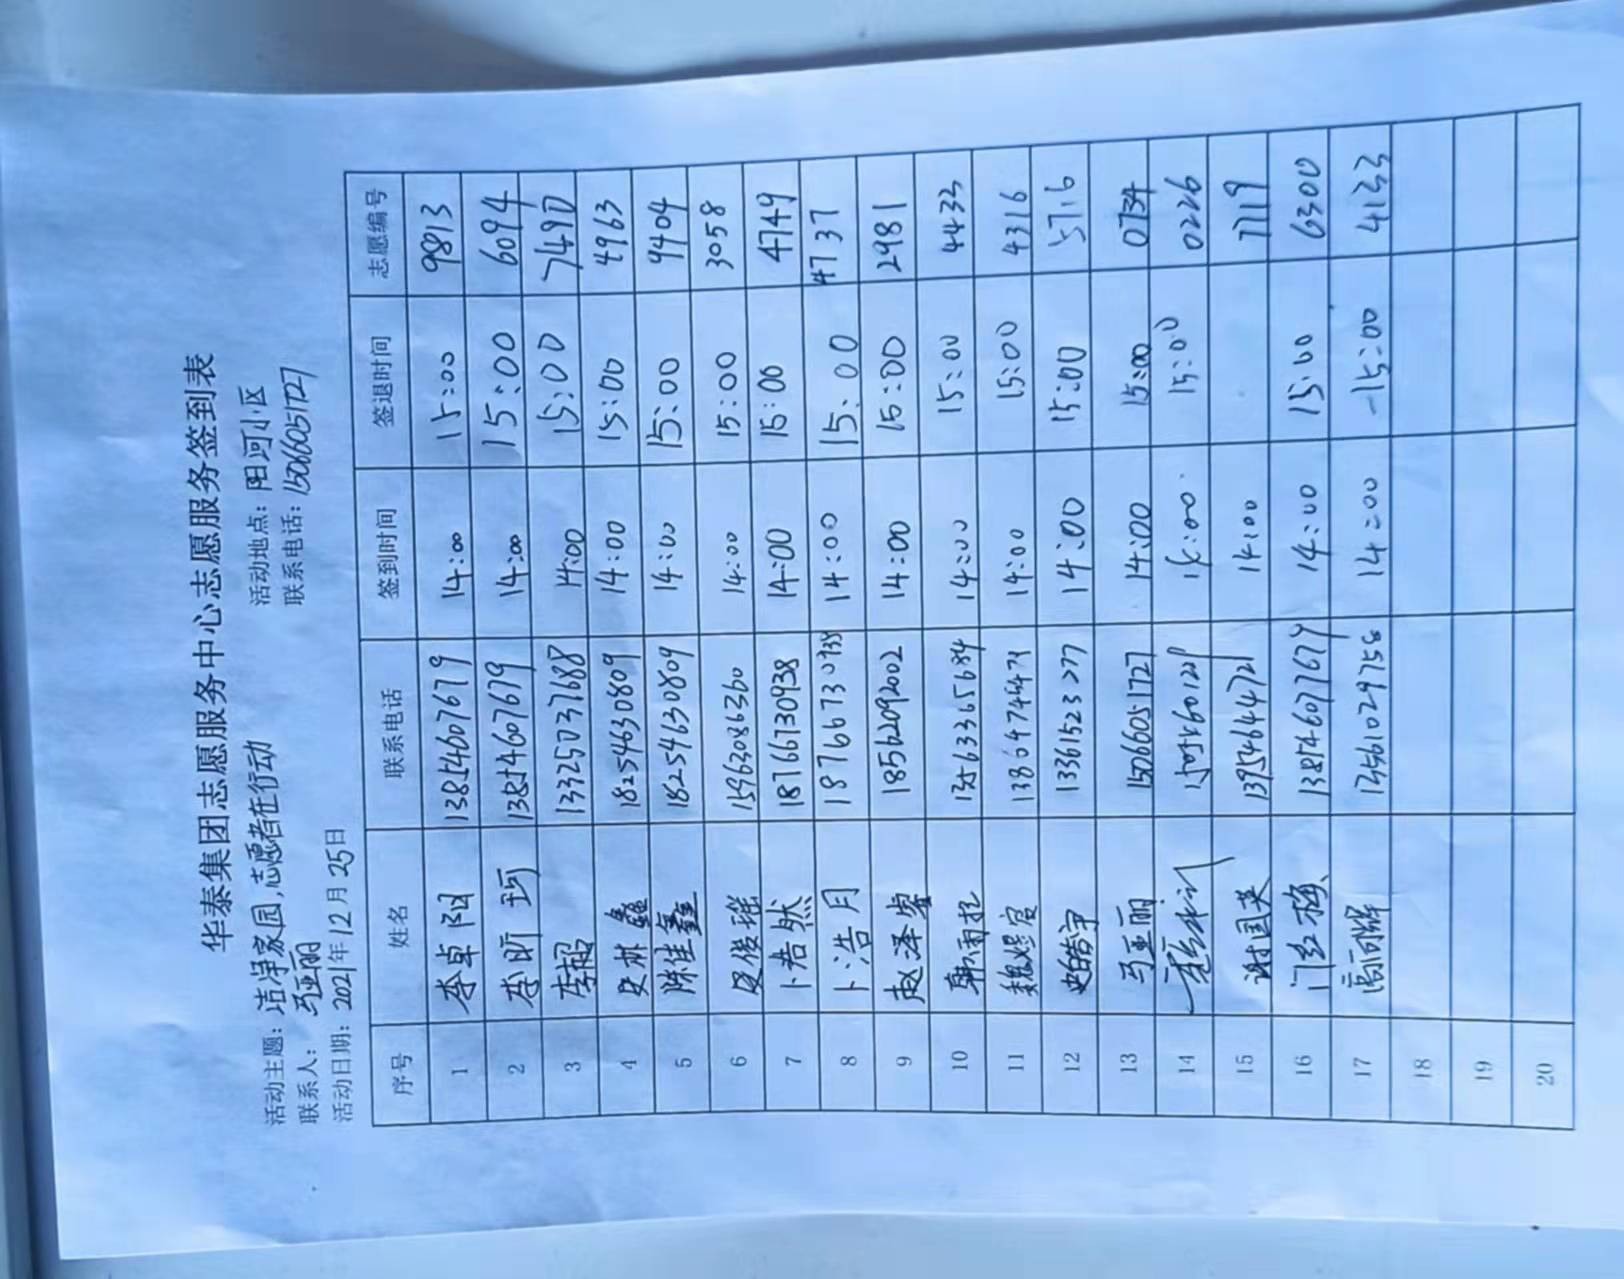 华泰集团志愿服务中心志愿服务签到表
活动主题：洁净家园，志愿者在行动 活动地点：阳河小区
联系人：马亚丽 联系电话：15066051727
活动日期：2021年12月25日
序号 姓名 联系电话 签到时间 签退时间 志愿编号
1 李卓阳 13854607679 14:00 15:00 9813
2 李昕珂 13854607679 14:00 15:00 6094
3 李超 13325037688 14:00 15:00 7490
4 史琳鑫 18254630809 14:00 15:00 4963
5 陈佳鑫 18254630809 14:00 15:00 9404
6 俊瑶 15963086360 14:00 15:00 3058
7 卜浩然 18766730938 14:00 15:00 4749
8 卜浩月 18766730938 14:00 15:00 4737
9 赵泽睿 18562092002 14:00 15:00 2981
10 韩雨 13563365684 14:00 15:00 4433
11 魏 13864744471 14:00 15:00 4316
12 13361523777 14:00 15:00 5716
13 马亚丽 15066051727 14:00 15:00 0734
14 15:00 0226
15 谢国英 13954644721 14:00 7719
16 门红梅 13854607679 14:00 15:00 6300
17 高 13561029755 14:00 15:00 4133
18
19
20